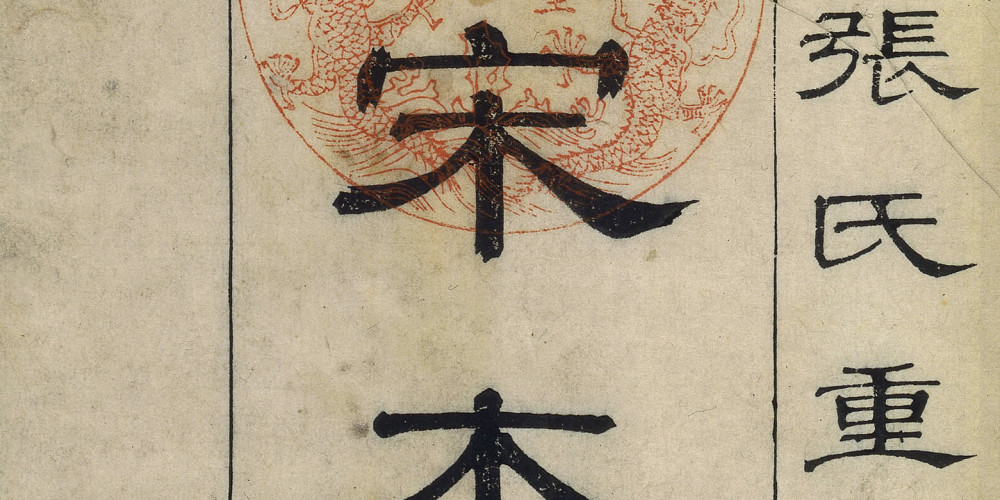 張氏重
宋本